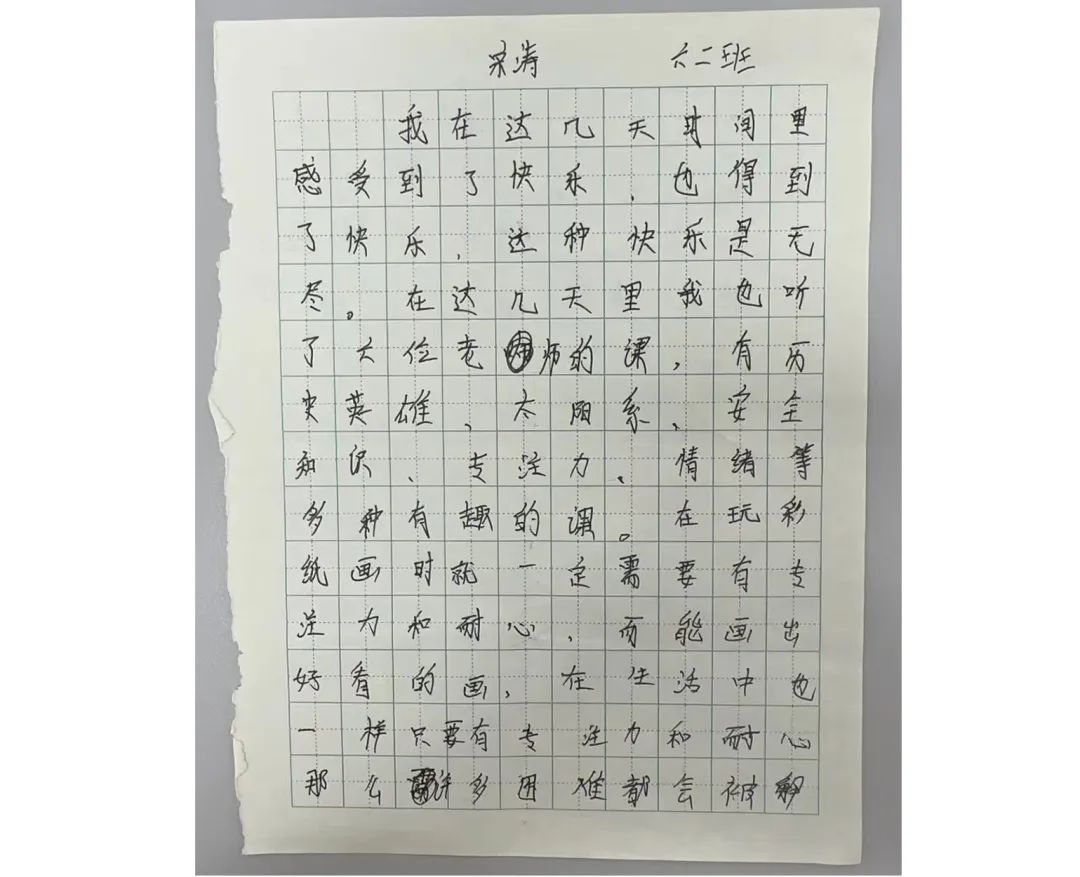 宋涛 六二班
我在这几天时间里
感受到了快乐，也得到
了快乐，这种快乐是无
尽。在这几天里我也听
了六位老师的课，有历
史英雄、太阳系、安全
知识、专注力、情绪等
多种有趣的课。在玩彩
纸画时就一定需要有专
注力和耐心，而能画出
好看的画，在生活中也
一样只要有专注力和耐心
那么许多困难都会被